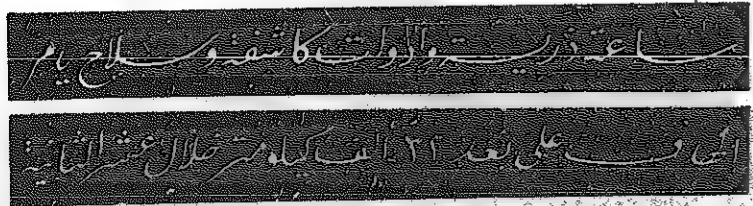 ساعة ذرية وأدوات كاشفة وسلاح يدمر
الهدف على بعد ٣٢ ألف كيلومتر خلال عشر الثانية